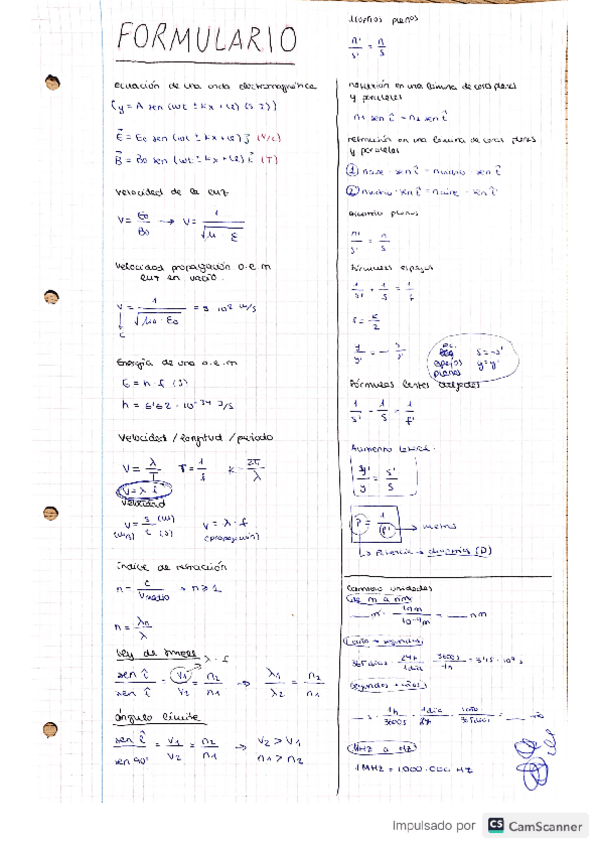 FORMULARIO
ecuación de una onda electromagnética
(y = A sen (ωt ± kx + φ) (S I))
E⃗ = E₀ sen (ωt ± kx + φ) j⃗ (N/C)
B⃗ = B₀ sen (ωt ± kx + φ) i⃗ (T)
velocidad de la luz
V = E₀/B₀ → V = 1/√(μ · ε)
velocidad propagación o.e.m
luz en vacío.
V = 1/√(μ₀ · ε₀) = 3 · 10⁸ m/s
c
Energía de una o.e.m
E = h · f (J)
h = 6'62 · 10⁻³⁴ J/s
Velocidad / longitud / periodo
V = λ/T T = 1/f K = 2π/λ
velocidad
V = s (m) / t (s) V = λ · f
(m/s) (propagación)
índice de refracción
n = c/Vmedio → n ≥ 1
n = λ₀/λ
ley de Snell λ · f
sen î / sen î = V₁/V₂ = n₂/n₁ → λ₁/λ₂ = n₂/n₁
ángulo límite
sen î / sen 90° = V₁/V₂ = n₂/n₁ → V₂ > V₁
n₁ > n₂
dioptrios planos
n'/s' = n/s
y paralelas
n₁ sen î = n₂ sen î
refracción en una lámina de caras planas
y paralelas
① naire · sen î = nvidrio · sen î
② nvidrio · sen î = naire · sen î
planos
n'/s' = n/s
Fórmulas espejos
1/s' + 1/s = 1/f
f = r/2
y'/y = - s'/s
espejos
planos
s = -s'
y = y'
Fórmulas lentes delgadas
1/s' - 1/s = 1/f'
Aumento lateral:
y'/y = s'/s
P = 1/f' → metros
Potencia → dioptrías (D)
Cambio unidades
de m a nm
___ m · 1nm/10⁻⁹m = ___ nm
365 días · 24h/1día · 3600s/1h = 3'15 · 10⁷ s
segundos → años
___ s · 1h/3600s · 1día/24h · 1año/365días = ___ año
MHz a Hz
1 MHz = 1000.000 Hz
Impulsado por CS CamScanner